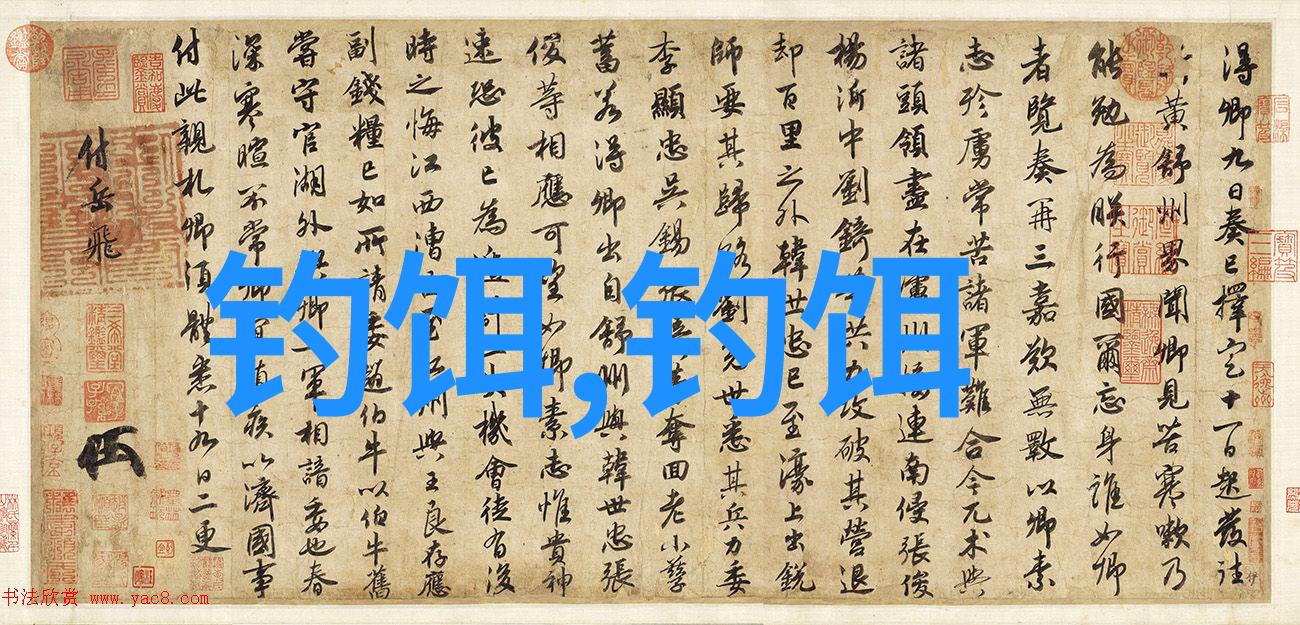 得卿九日奏已擇定十一日起發往
黃舒州界聞卿見苦寒嗽乃
能勉為朕行國爾忘身誰如卿
者覽奏再三嘉歎無斁以卿素
志殄虜常苦諸軍難合今兀术與
諸頭領盡在廬州接連南侵張俊
楊沂中劉錡共力攻破其營退
却百里之外韓世忠已至濠上出銳
師要其歸路劉光世悉其兵力委
李顯忠吳錫張奪回老小孳
蓄若得卿出自舒州與韓世忠張
俊等相應可望如卿素志惟貴神
速恐彼已為遁計一失機會徒有後
時之悔江西漕臣至江州與王良存應
副錢糧已如所請委趙伯牛以伯牛舊
嘗守官湖外與卿一軍相諳委也春
深寒暄不常卿宜慎疾以濟國事
付此親札卿須體悉十九日二更
付岳飛
钓饵,钓饵
书法欣赏 www.yac8.com